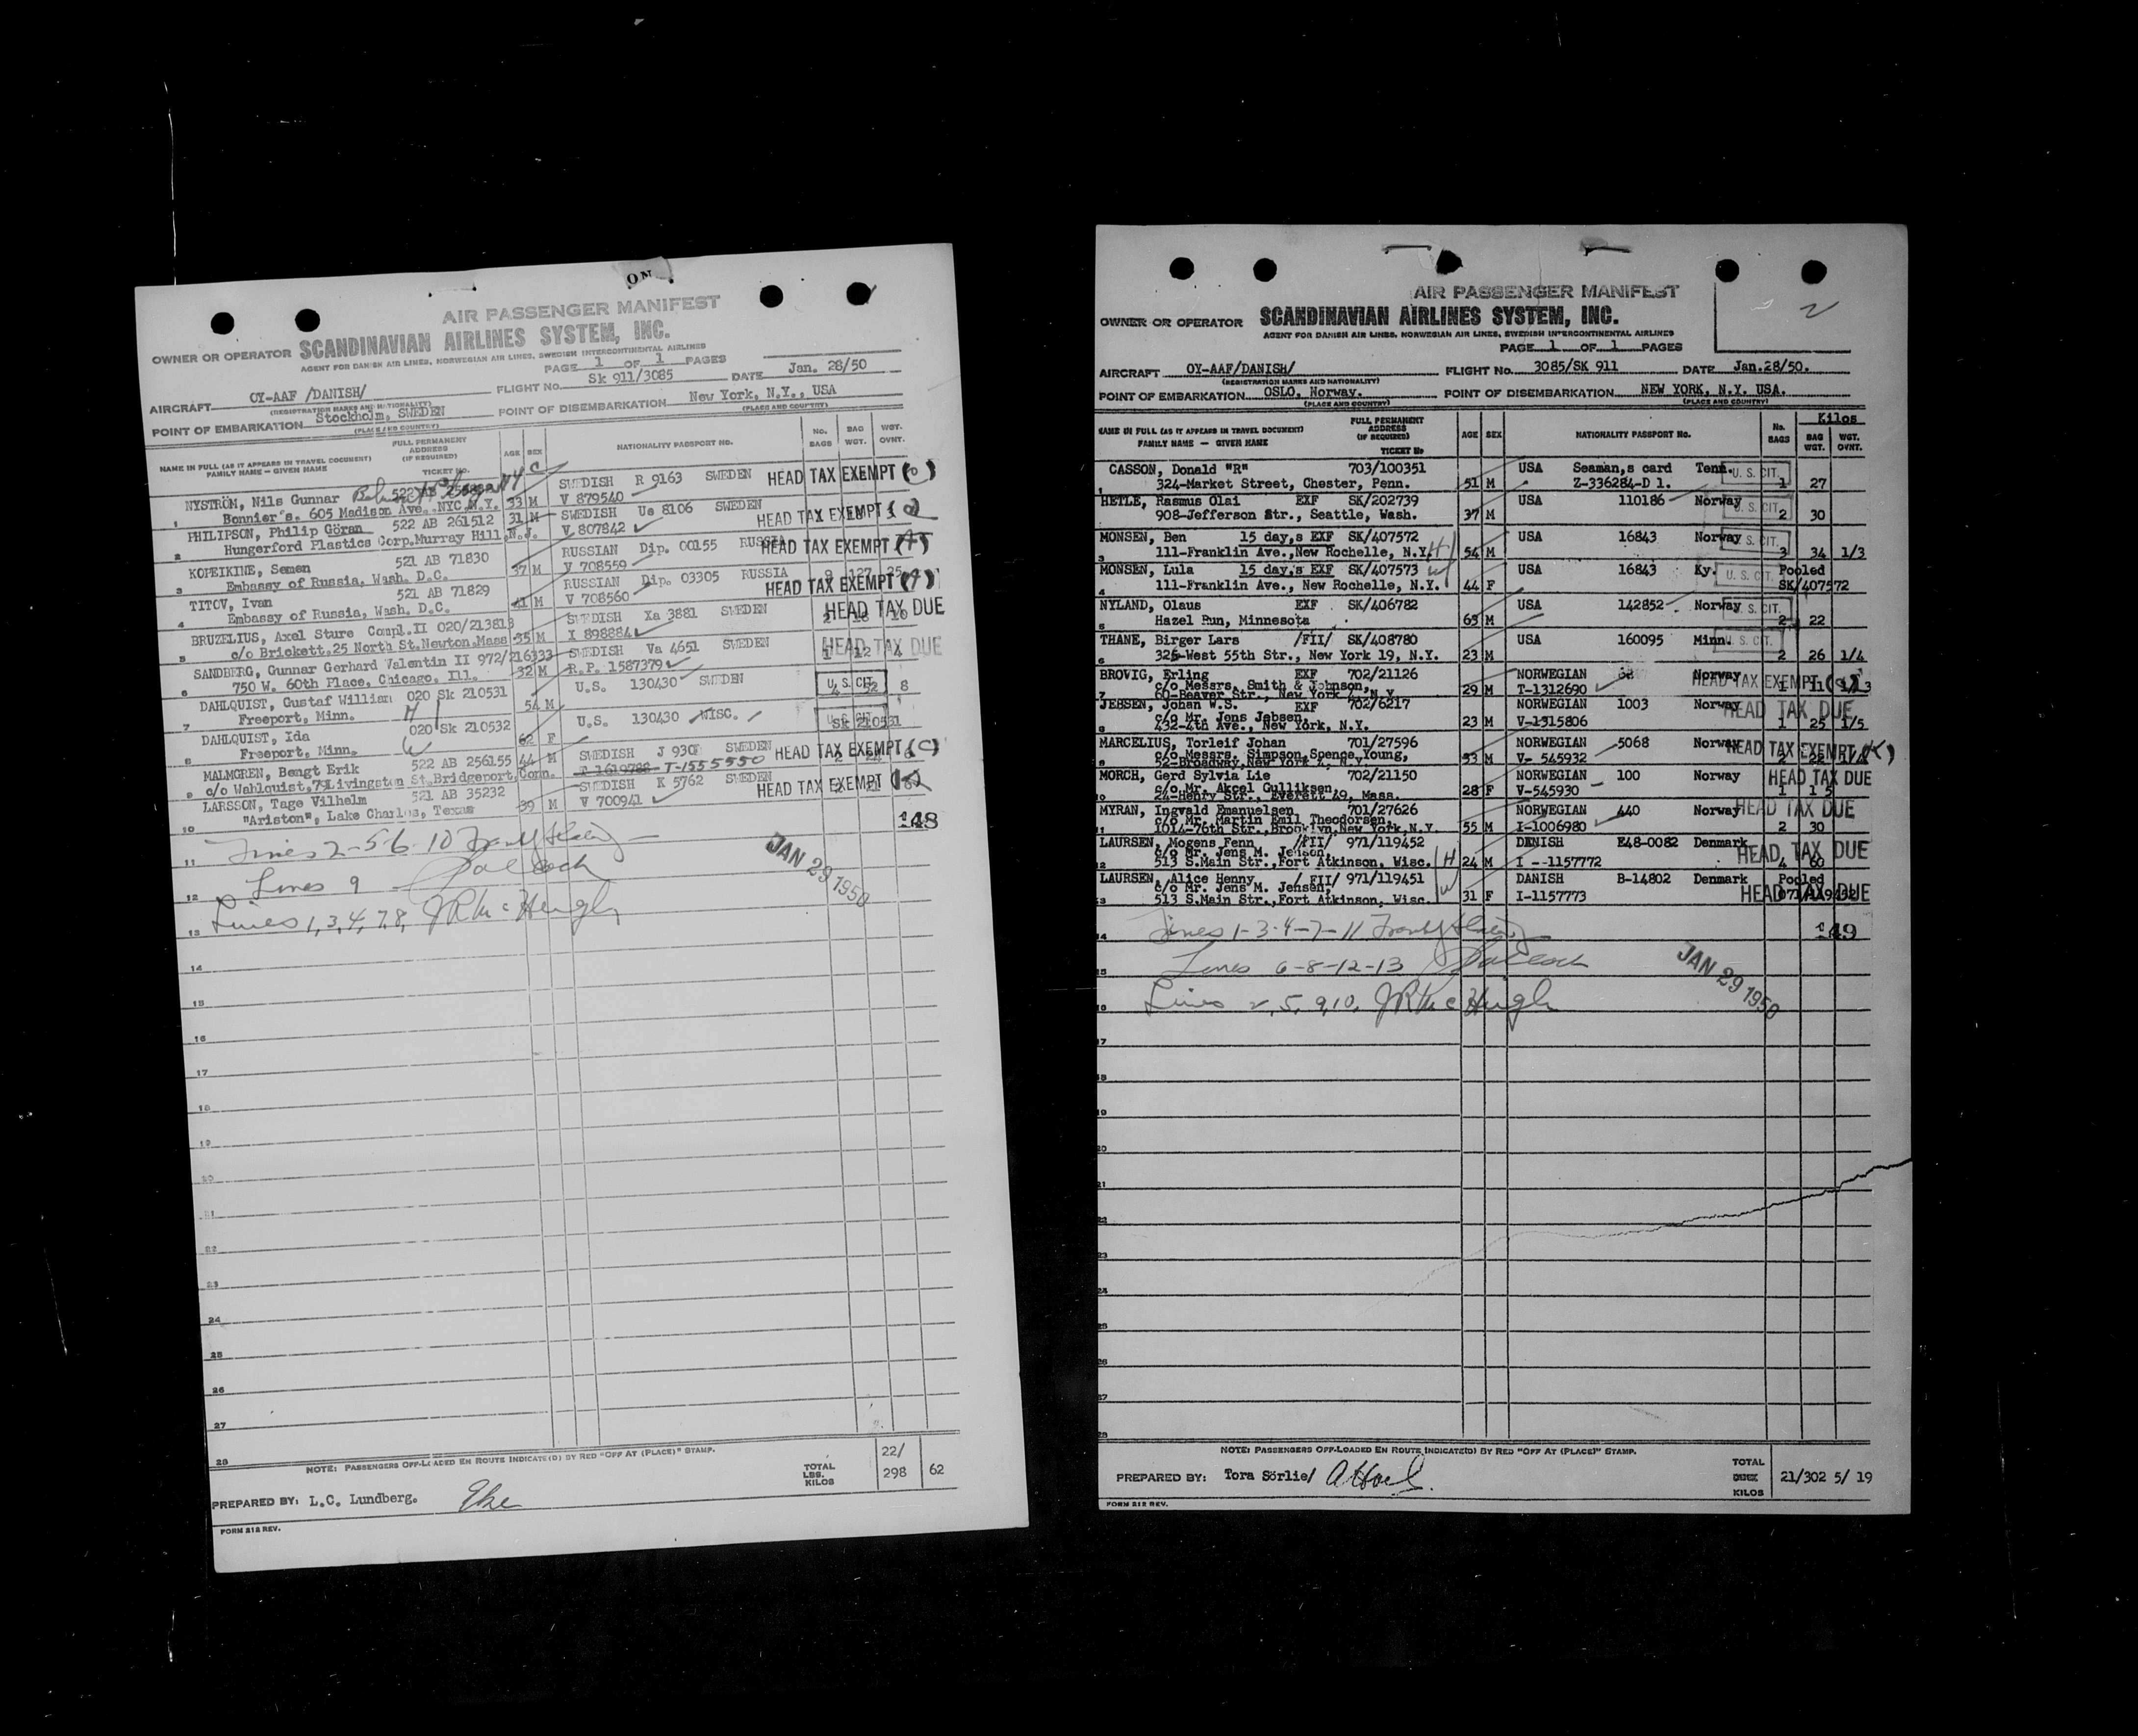 ON
AIR PASSENGER MANIFEST
OWNER OR OPERATOR SCANDINAVIAN AIRLINES SYSTEM, INC.
AGENT FOR DANISH AIR LINES, NORWEGIAN AIR LINES, SWEDISH INTERCONTINENTAL AIRLINES
PAGE 1 OF 1 PAGES
AIRCRAFT OY-AAF /DANISH/ FLIGHT No. Sk 911/3085 DATE Jan. 28/50
(REGISTRATION MARKS AND NATIONALITY)
POINT OF EMBARKATION Stockholm, SWEDEN POINT OF DISEMBARKATION New York, N.Y., USA
(PLACE AND COUNTRY) (PLACE AND COUNTRY)
NAME IN FULL (AS IT APPEARS IN TRAVEL DOCUMENT) FULL PERMANENT ADDRESS (IF REQUIRED) AGE SEX NATIONALITY PASSPORT No. No. BAGS BAG WGT. WGT. OVNT.
FAMILY NAME — GIVEN NAME TICKET No.
NYSTRÖM, Nils Gunnar 522 AB SWEDISH R 9163 SWEDEN HEAD TAX EXEMPT
1 Bonnier's. 605 Madison Ave. NYC.N.Y. 33 M V 879540
PHILIPSON, Philip Göran 522 AB 261512 31 M SWEDISH Ua 8106 SWEDEN HEAD TAX EXEMPT
2 Hungerford Plastics Corp.Murray Hill,N.J. V 807842
KOPEIKINE, Semen 521 AB 71830 RUSSIAN Dip. 00155 RUSSIA HEAD TAX EXEMPT
3 Embassy of Russia, Wash. D.C. 37 M V 708559
TITOV, Ivan 521 AB 71829 RUSSIAN Dip. 03305 RUSSIA HEAD TAX EXEMPT
4 Embassy of Russia, Wash. D.C. 41 M V 708560
BRUZELIUS, Axel Sture Compl.II 020/213813 SWEDISH Xa 3881 SWEDEN HEAD TAX DUE
5 c/o Brickett.25 North St.Newton.Mass 35 M I 898884
SANDBERG, Gunnar Gerhard Valentin II 972/216333 SWEDISH Va 4651 SWEDEN HEAD TAX DUE
6 750 W. 60th Place, Chicago, Ill. 32 M R.P. 1587379
DAHLQUIST, Gustaf William 020 Sk 210531 U.S. 130430 SWEDEN U. S. CIT. 8
7 Freeport, Minn. H 54 M
DAHLQUIST, Ida 020 Sk 210532 U.S. 130430 WISC. Sk 210531
8 Freeport, Minn. W 62 F
MALMGREN, Bengt Erik 522 AB 256155 44 M SWEDISH J 930 SWEDEN HEAD TAX EXEMPT (C)
9 c/o Wahlquist,79Livingston St.Bridgeport,Conn. T-1555550
LARSSON, Tage Vilhelm 521 AB 35232 SWEDISH K 5762 SWEDEN HEAD TAX EXEMPT
10 "Ariston", Lake Charles, Texas 39 M V 700941
148
11 Lines 2-5-6-10
JAN 29 1950
12 Lines 9
13 Lines 1,3,4,7,8, JR McHugh
14
15
16
17
18
19
20
21
22
23
24
25
26
27
28
NOTE: PASSENGERS OFF-LOADED EN ROUTE INDICATE(D) BY RED "OFF AT (PLACE)" STAMP.
TOTAL LBS. KILOS 22/ 298 62
PREPARED BY: L.C. Lundberg.
FORM 212 REV.
AIR PASSENGER MANIFEST
OWNER OR OPERATOR SCANDINAVIAN AIRLINES SYSTEM, INC.
AGENT FOR DANISH AIR LINES, NORWEGIAN AIR LINES, SWEDISH INTERCONTINENTAL AIRLINES
PAGE 1 OF 1 PAGES
AIRCRAFT OY-AAF/DANISH/ FLIGHT No. 3085/SK 911 DATE Jan.28/50.
(REGISTRATION MARKS AND NATIONALITY)
POINT OF EMBARKATION OSLO, Norway. POINT OF DISEMBARKATION NEW YORK, N.Y. USA.
(PLACE AND COUNTRY) (PLACE AND COUNTRY)
Kilos
NAME IN FULL (AS IT APPEARS IN TRAVEL DOCUMENT) FULL PERMANENT ADDRESS (IF REQUIRED) AGE SEX NATIONALITY PASSPORT No. No. BAGS BAG WGT. WGT. OVNT.
FAMILY NAME — GIVEN NAME TICKET No
CASSON, Donald "R" 703/100351 USA Seaman,s card Tenn. U. S. CIT.
1 324-Market Street, Chester, Penn. 51 M Z-336284-D 1. 1 27
HETLE, Rasmus Olai EXF SK/202739 USA 110186 Norway U. S. CIT.
908-Jefferson Str., Seattle, Wash. 37 M 2 30
MONSEN, Ben 15 day,s EXF SK/407572 USA 16843 Norway U. S. CIT.
3 111-Franklin Ave.,New Rochelle, N.Y. H 54 M 3 34 1/3
MONSEN, Lula 15 day,s EXF SK/407573 USA 16843 Ky. U. S. CIT. Pooled
4 111-Franklin Ave., New Rochelle, N.Y. W 44 F SK/407572
NYLAND, Olaus EXF SK/406782 USA 142852 Norway U. S. CIT.
5 Hazel Run, Minnesota 65 M 2 22
THANE, Birger Lars /FII/ SK/408780 USA 160095 Minn. U. S. CIT.
6 325-West 55th Str., New York 19, N.Y. 23 M 2 26 1/4
BROVIG, Erling EXF 702/21126 NORWEGIAN Norway HEAD TAX EXEMPT
c/o Messrs, Smith & Johnson,
7 60-Beaver Str., New York 4, N.Y. 29 M T-1312690
JEBSEN, Johan W.S. EXF 702/6217 NORWEGIAN 1003 Norway HEAD TAX DUE
c/o Mr. Jens Jebsen,
8 432-4th Ave., New York, N.Y. 23 M V-1315806 1 25 1/5
MARCELIUS, Torleif Johan 701/27596 NORWEGIAN 5068 Norway HEAD TAX EXEMPT (K)
c/o Messrs. Simpson,Spence,Young,
9 52-Broadway,New York 4, N.Y. 53 M V- 545932
MORCH, Gerd Sylvia Lie 702/21150 NORWEGIAN 100 Norway HEAD TAX DUE
c/o Mr. Aksel Gulliksen,
10 24-Henry Str., Everett 49, Mass. 28 F V-545930 1 15
MYRAN, Ingvald Emanuelsen 701/27626 NORWEGIAN 440 Norway HEAD TAX DUE
c/o Mr. Martin Emil Theodorsen,
11 1014-76th Str.,Brooklyn,New York,N.Y. 55 M I-1006980 2 30
LAURSEN, Mogens Fenn /FII/ 971/119452 DANISH E48-0082 Denmark HEAD TAX DUE
c/o Mr. Jens M. Jensen,
12 513 S.Main Str.,Fort Atkinson, Wisc. H 24 M I --1157772 4 60
LAURSEN, Alice Henny / FII/ 971/119451 DANISH B-14802 Denmark Pooled
c/o Mr. Jens M. Jensen,
13 513 S.Main Str.,Fort Atkinson, Wisc. W 31 F I-1157773 HEAD TAX DUE
14 Lines 1-3-4-7-11 149
15 Lines 6-8-12-13 JAN 29 1950
16 Lines 2, 5, 9, 10, JR McHugh
17
18
19
20
21
22
23
24
25
26
27
28
NOTE: PASSENGERS OFF-LOADED EN ROUTE INDICATE(D) BY RED "OFF AT (PLACE)" STAMP.
PREPARED BY: Tora Sörlie/ TOTAL KILOS 21/302 5/ 19
FORM 212 REV.